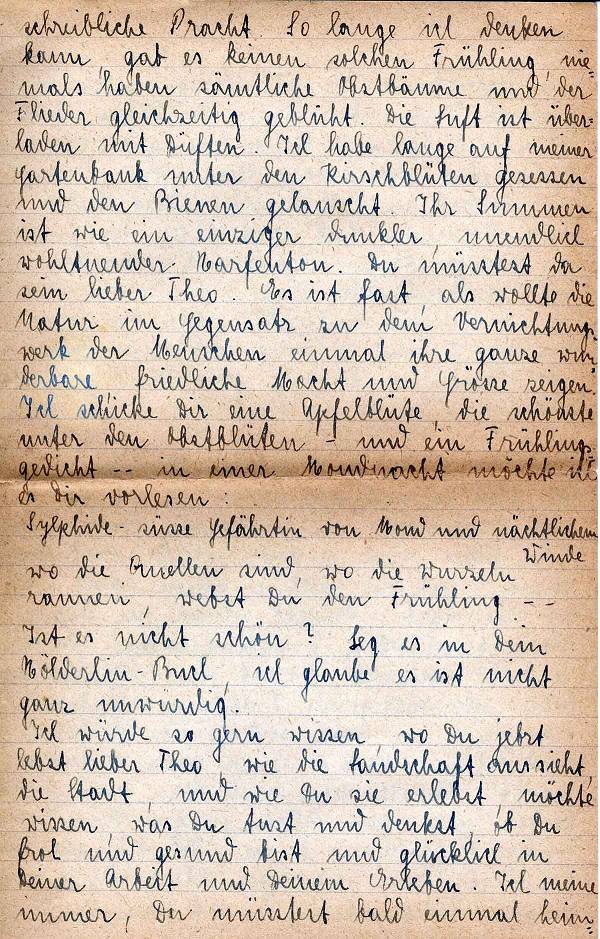 schreibliche Pracht. So lange ich denken
kann, gab es keinen solchen Frühling, nie=
mals haben sämtliche Obstbäume und der
Flieder gleichzeitig geblüht. Die Luft ist über=
laden mit Düften. Ich habe lange auf meiner
Gartenbank unter den Kirschblüten gesessen
und den Bienen gelauscht. Ihr Summen
ist wie ein einziger dunkler, unendlich
wohltuender Harfenton. Du müsstest da
sein lieber Theo. Es ist fast, als wollte die
Natur im Gegensatz zu dem Vernichtungs=
werk der Menschen einmal ihre ganze wun=
derbare friedliche Macht und Grösse zeigen.
Ich schicke Dir eine Apfelblüte, die schönste
unter den Obstblüten - und ein Frühlings=
gedicht -- in einer Mondnacht möchte ich
es Dir vorlesen:
Sylphide - süsse Gefährtin von Mond und nächtlichem
Winde
wo die Quellen sind, wo die Wurzeln
raunen, webst Du den Frühling --
Ist es nicht schön? Leg es in Dein
Hölderlin-Buch, ich glaube es ist nicht
ganz unwürdig.
Ich würde so gern wissen wo Du jetzt
lebst lieber Theo, wie die Landschaft aussieht,
die Stadt, und wie Du sie erlebst, möchte
wissen, was Du tust und denkst, ob Du
froh und gesund bist und glücklich in
Deiner Arbeit und Deinem Erleben. Ich meine
immer, Du müsstest bald einmal heim=